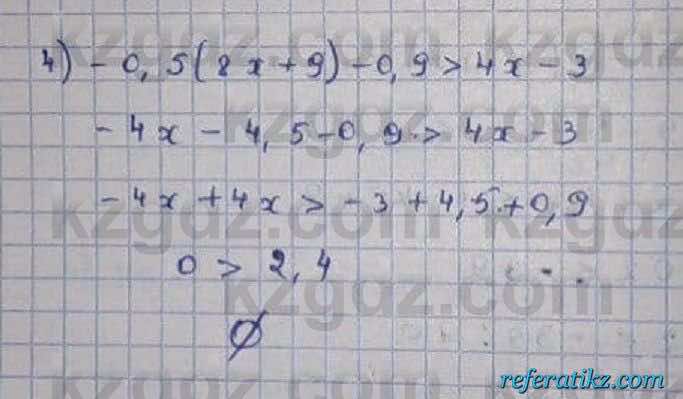 4) -0,5(8x+9)-0,9>4x-3
-4x-4,5-0,9>4x-3
-4x+4x>-3+4,5+0,9
0>2,4
∅
kzgdz.com
referatikz.com